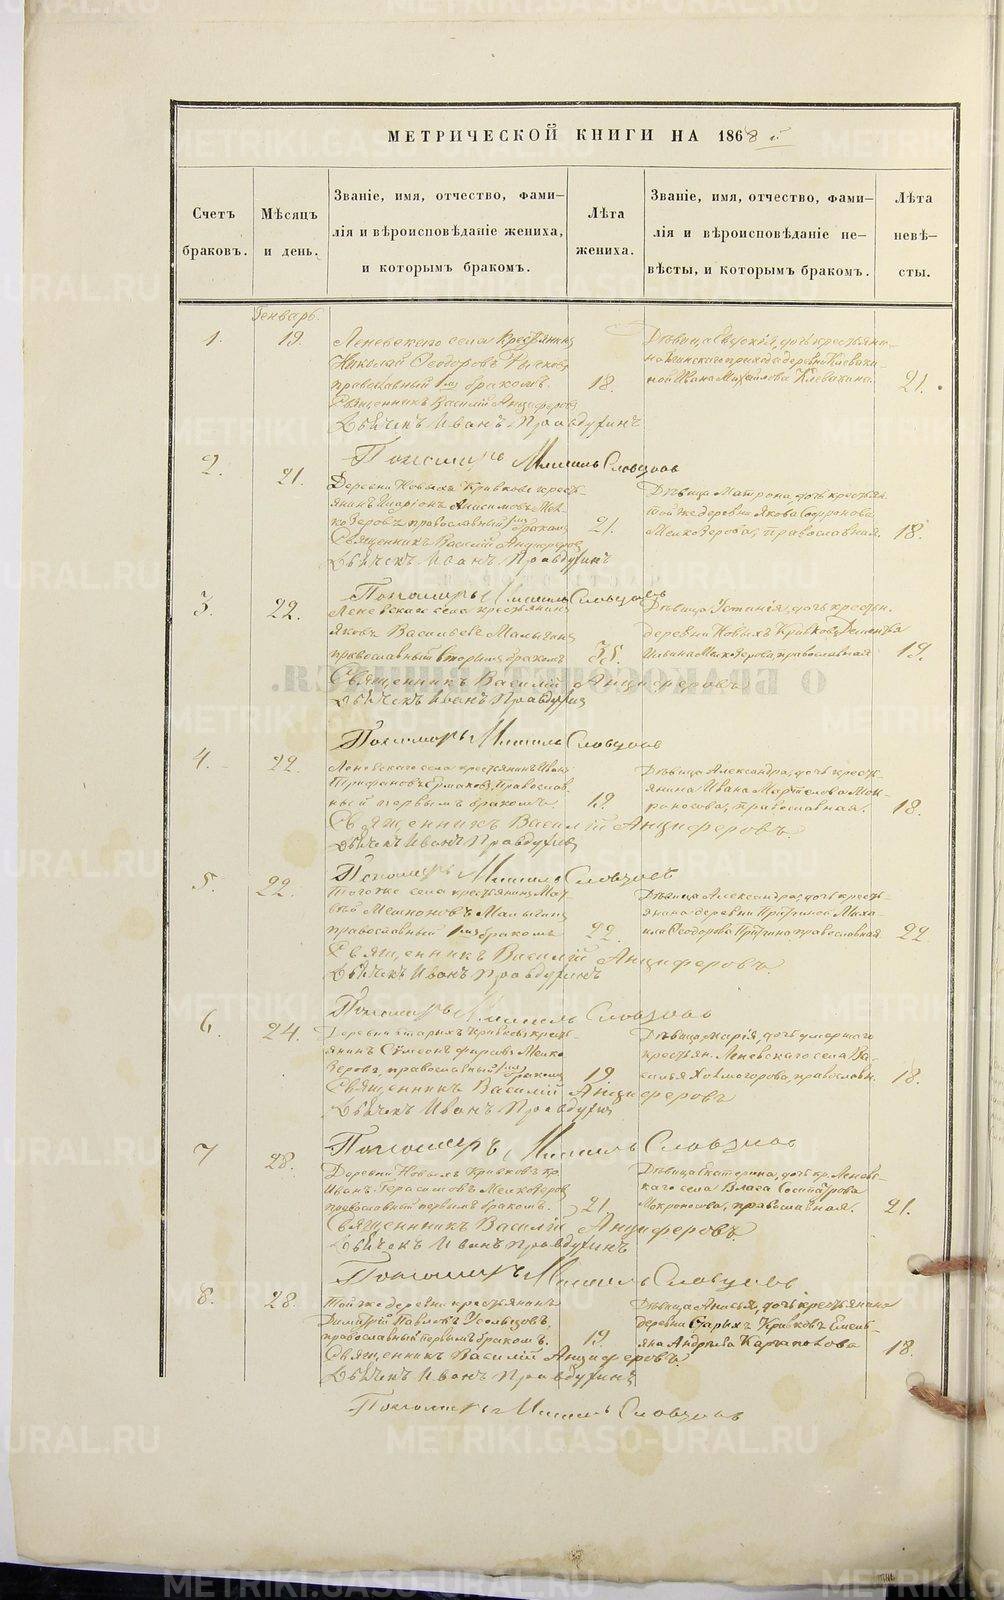 МЕТРИЧЕСКОЙ КНИГИ НА 1868 й
Счетъ браковъ.
Мѣсяцъ и день.
Званіе, имя, отчество, фами-
лія и вѣроисповѣданіе жениха,
и которымъ бракомъ.
Лѣта жениха.
Званіе, имя, отчество, фами-
лія и вѣроисповѣданіе не-
вѣсты, и которымъ бракомъ.
Лѣта невѣ-
сты.
Генварь.
1. 19.
Леневскаго села крестьянинъ
Николай Ѳеодоровъ
православный 1мъ бракомъ. 18.
Священникъ Василій Анциферовъ
Дьячекъ Иванъ Правдухинъ
Пономарь Словцовъ
Дѣвица дочь крестьяни-
на прихода деревни Клеваки-
ной Ивана Михайлова Клевакина. 21.
2. 21.
Деревни Новыхъ Кривковъ кресть-
янинъ Иларіонъ Анисимовъ Мел-
козеровъ православный 1мъ бракомъ 21.
Священникъ Василій Анциферовъ
Дьячекъ Иванъ Правдухинъ
Пономарь Словцовъ
Дѣвица Матрона, дочь крестьян.
той же деревни Якова Софронова
Мелкозерова, православная. 18.
3. 22.
Леневскаго села крестьянинъ
Яковъ Васильевъ Малыгинъ
православный вторымъ бракомъ 35.
Священникъ Василій Анциферовъ
Дьячекъ Иванъ Правдухинъ
Пономарь Словцовъ
Дѣвица Устинія, дочь крестьян.
деревни Новыхъ Кривковъ Дементья
Ильина Мелкозерова, православная 19.
4. 22.
Леневскаго села крестьянинъ Иванъ
Трифоновъ Ермаковъ, Православ-
ный первымъ бракомъ. 19.
Священникъ Василій Анциферовъ
Дьячекъ Иванъ Правдухинъ
Пономарь Словцовъ
Дѣвица Александра, дочь кресть-
янина Ивана Мок-
роносова, православная. 18.
5. 22.
Того же села крестьянинъ Мат-
вѣй Малыгинъ
православный 1мъ бракомъ 22.
Священникъ Василій Анциферовъ
Дьячекъ Иванъ Правдухинъ
Пономарь Словцовъ
Дѣвица Александра, дочь кресть-
янина деревни Миха-
ила Ѳеодорова православная 22.
6. 24.
Деревни старыхъ Кривковъ кресть-
янинъ Сѵмеонъ Мелко-
зеровъ, православный 1мъ бракомъ 19.
Священникъ Василій Анциферовъ
Дьячекъ Иванъ Правдухинъ
Пономарь Словцовъ
Дѣвица Марія, дочь умершаго
крестьян. Леневскаго села Ва-
силья Холмогорова, православн. 18.
7 28.
Деревни Новыхъ Кривковъ кр.
Иванъ Герасимовъ Мелкозеровъ
православный первымъ бракомъ. 21.
Священникъ Василій Анциферовъ.
Дьячекъ Иванъ Правдухинъ
Пономарь Словцовъ
Дѣвица Екатерина, дочь кр. Леневс-
каго села Власа Сосипатрова
Мокроносова, православная. 21.
8. 28.
Той же деревни крестьянинъ
Димитрій Павловъ Усольцовъ,
православный первымъ бракомъ. 19
Священникъ Василій Анциферовъ.
Дьячекъ Иванъ Правдухинъ
Пономарь Словцовъ
Дѣвица Анисья, дочь крестьянина
деревни Старыхъ Кривковъ Емель-
яна Андреева Карпова 18.
METRIKI.GASO-URAL.RU